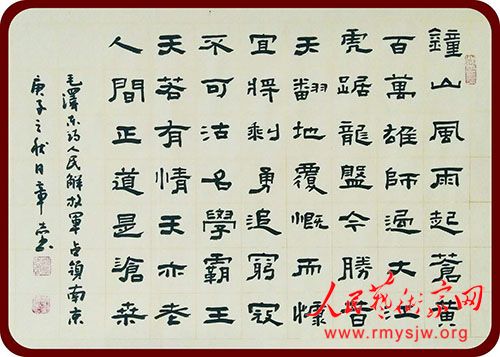 鐘山風雨起蒼黃
百萬雄師過大江
虎踞龍盤今勝昔
天翻地覆慨而慷
宜將剩勇追窮寇
不可沽名學霸王
天若有情天亦老
人間正道是滄桑
毛澤东詩人民解放軍占領南京
庚子之秋日章
人民藝術家网
www.rmysjw.org